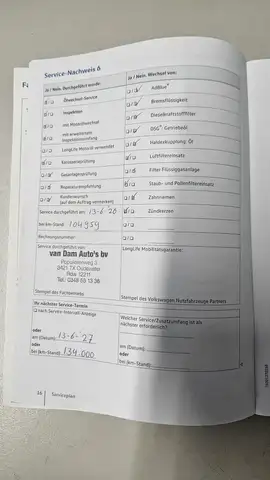 Service-Nachweis 6
Ja / Nein Durchgeführt wurde:
Ja / Nein Wechsel von:
Ölwechsel-Service
AdBlue®
Inspektion
Bremsflüssigkeit
mit Motorölwechsel
Dieselkraftstofffilter
mit erweitertem Inspektionsumfang
DSG®-Getriebeöl
LongLife Motoröl verwendet
Haldexkupplung: Öl
Karosserieprüfung
Luftfiltereinsatz
Gasanlagenprüfung
Filter Flüssiggasanlage
Reparaturempfehlung
Staub- und Pollenfiltereinsatz
Kundenwunsch
(auf dem Auftrag vermerken)
Zahnriemen
Service durchgeführt am: 13-6-26
Zündkerzen
bei km-Stand: 104959
Rechnungsnummer:
Service durchgeführt von:
LongLife Mobilitätsgarantie:
van Dam Auto's bv
Populierenweg 3
8421 TX Oldeberkoop
Tel.: 0348 55 13 36
Stempel des Fachbetriebs
Stempel des Volkswagen Nutzfahrzeuge Partners
Ihr nächster Service-Termin
nach Service-Intervall-Anzeige
Welcher Service/Zusatzumfang ist als nächster erforderlich?
oder
am (Datum): 13-6-27
oder
am (Datum):
bei (km-Stand): 134.000
oder
bei (km-Stand):
Serviceplan